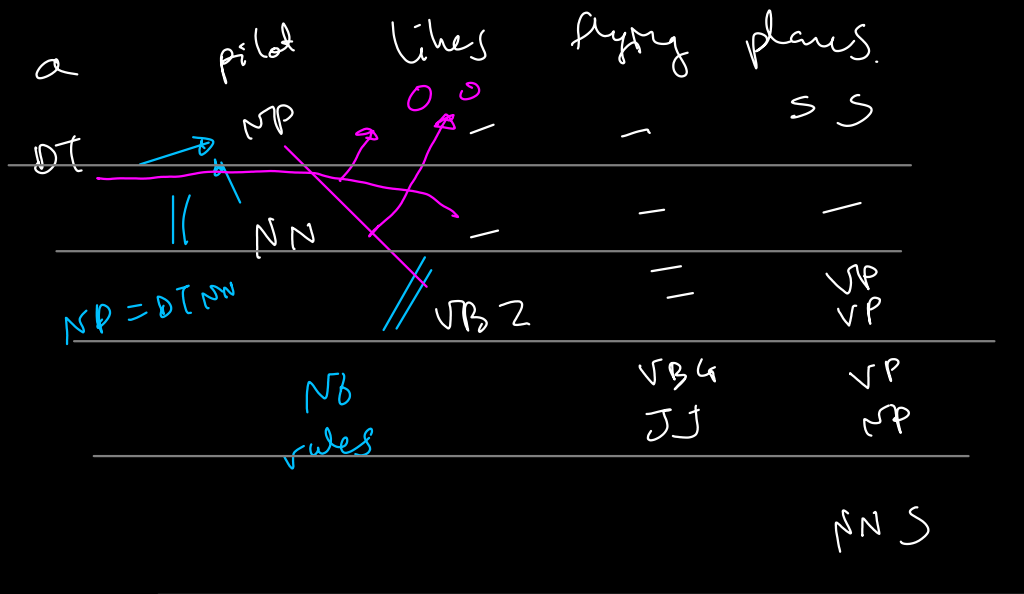 a pilot likes flying planes.
S S
DT NP O O - -
NN - - -
NP = DT NN
VBZ - - VP VP
No rules
VBG VP
JJ NP
NNS